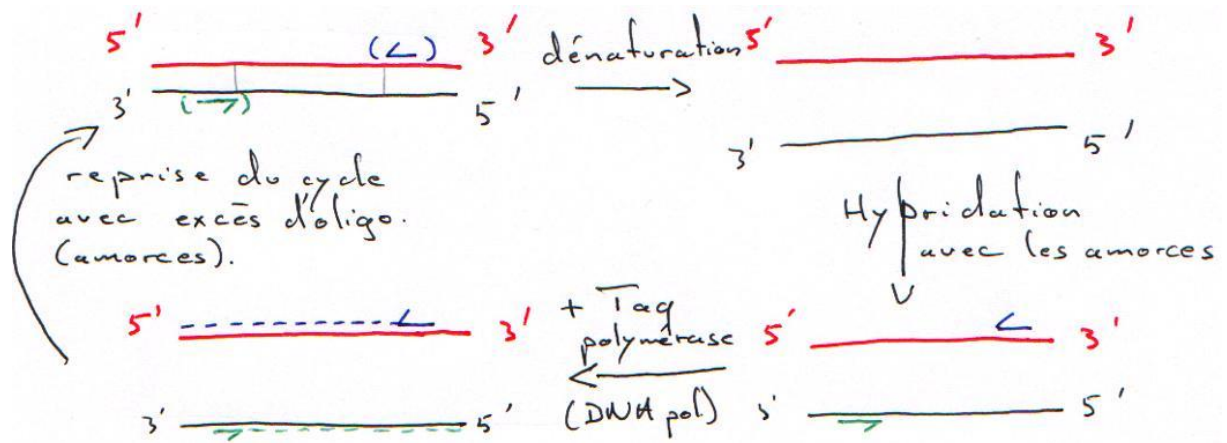 5' (<) 3' dénaturation 5' 3'
3' (→) 5' 3' 5'
reprise du cycle
avec excès d'oligo.
(amorces).
Hybridation
avec les amorces
5' 3' + Taq
polymérase 5' 3'
3' 5' (DNA pol) 3' 5'